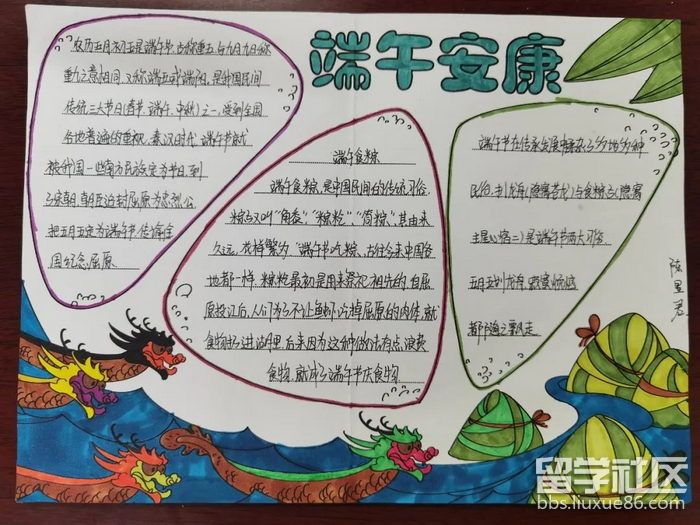 端午安康
农历五月初五是端午节，也称重五，与九月九日称
重九之意相同，又称端五或端阳，是我国民间
传统三大节日（春节、端午、中秋）之一，受到全国
各地普遍的重视，秦汉时代，端午节就
被我国一些南方民族定为节日，到
了宋朝，朝臣追封屈原为忠烈公
把五月五定为端午节，使得全
国纪念屈原
端午食粽
端午食粽，是中国民间的传统习俗
粽子又叫“角黍”、“粽籺”、“筒粽”，其由来
久远，花样繁多，端午节吃粽，古往今来中国各
地都一样，粽籺最初是用来祭祀祖先的，自屈
原投江后，人们为了不让鱼虾吃掉屈原的肉体，就
食物扔进湖里，后来因为这种做法有点浪费
食物，就成了端午节庆食物
端午节在传承发展中杂了多地多种
民俗，扒龙舟
与食粽子
是端午节两大习俗
五月五划龙舟
都随之飘走
留学社区
bbs.liuxue86.com